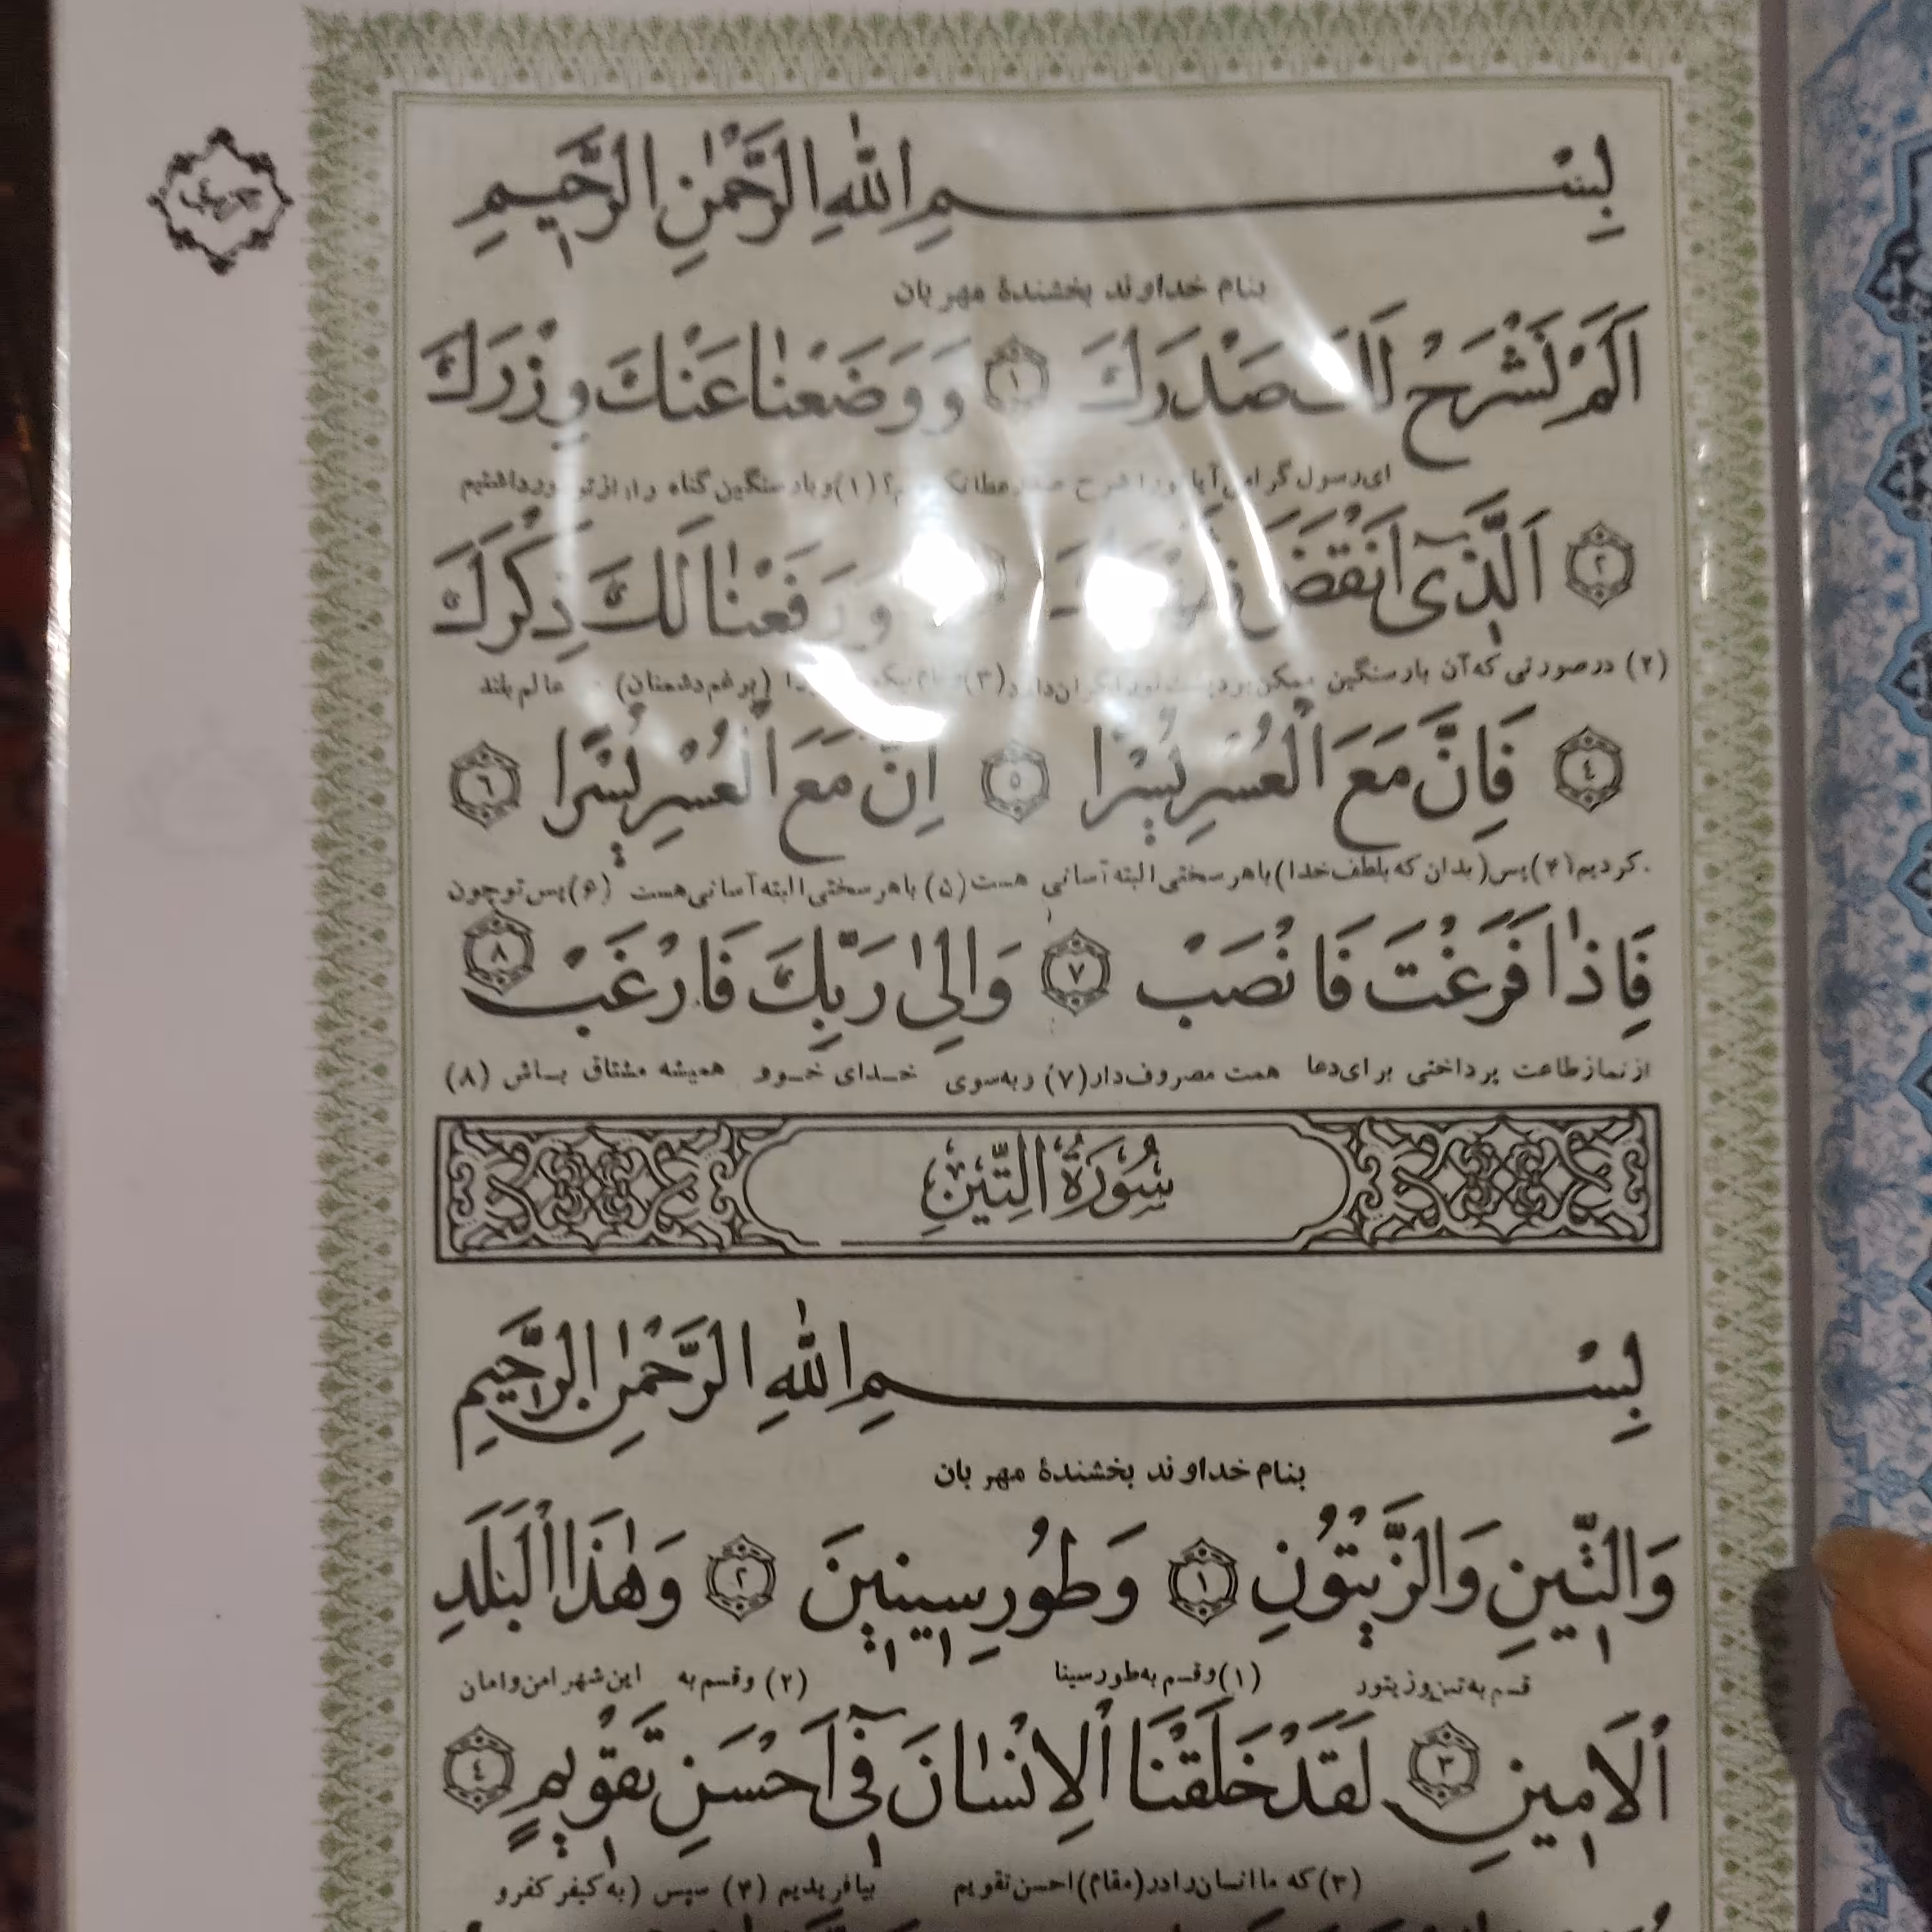 بِسْمِ اللهِ الرَّحْمٰنِ الرَّحیمِ
حزب ٤
بنام خداوند بخشندهٔ مهربان
اَلَمْ نَشْرَحْ لَكَ صَدْرَكَ ١ وَ وَضَعْنٰا عَنْكَ وِزْرَكَ
ای رسول گرامی آیا شرح (١) و بار سنگین گناه را از تو
٢ اَلَّذیٓ اَنْقَضَ وَ رَفَعْنٰا لَكَ ذِكْرَكَ
(٢) در صورتی که آن بار سنگین ممکن بود (٣) (برغم دشمنان) عالم بلند
٤ فَاِنَّ مَعَ الْعُسْرِ یُسْرًا ٥ اِنَّ مَعَ الْعُسْرِ یُسْرًا ٦
کردیم (۴) پس (بدان که بلطف خدا) با هر سختی البته آسانی هست (۵) با هر سختی البته آسانی هست (۶) پس تو چون
فَاِذٰا فَرَغْتَ فَانْصَبْ ٧ وَاِلیٰ رَبِّكَ فَارْغَبْ ٨
از نماز طاعت پرداختی برای دعا همت مصروف دار (٧) و به سوی خدای خود همیشه مشتاق باش (٨)
سُورَةُ التّینِ
بِسْمِ اللهِ الرَّحْمٰنِ الرَّحیمِ
بنام خداوند بخشندهٔ مهربان
وَالتّینِ وَالزَّیْتُونِ ١ وَطُورِ سینینَ ٢ وَهٰذَا الْبَلَدِ
قسم به تین و زیتون (١) و قسم به طور سینا (٢) و قسم به این شهر امن و امان
الْاَمینِ ٣ لَقَدْ خَلَقْنَا الْاِنْسٰانَ فیٓ اَحْسَنِ تَقْویمٍ ٤
(٣) که ما انسان را در (مقام) احسن تقویم بیافریدیم (۴) سپس (به کیفر کفر و